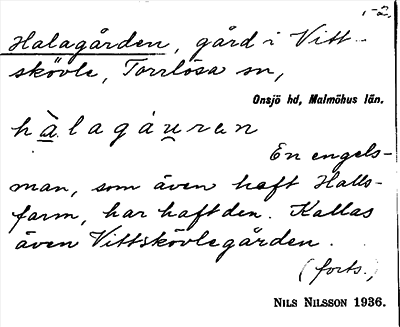 1-2.
Halagården, gård i Vitt-
skövle, Torrlösa sn,
Onsjö hd, Malmöhus län.
hàlagáu̯ran
En engels-
man, som även haft Halls-
farm, har haft den. Kallas
även Vittskövlegården.
(forts.)
NILS NILSSON 1936.